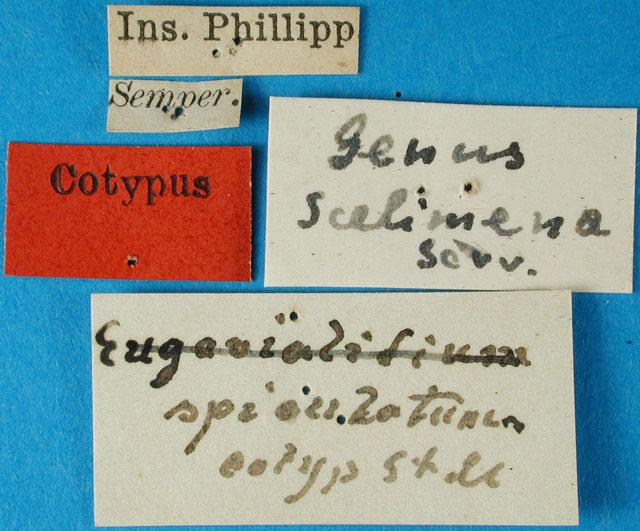 Ins. Phillipp
Semper.
Cotypus
Genus
Scelimena
Serv.
Eugavialidium
spiculatum
cotyp Stål